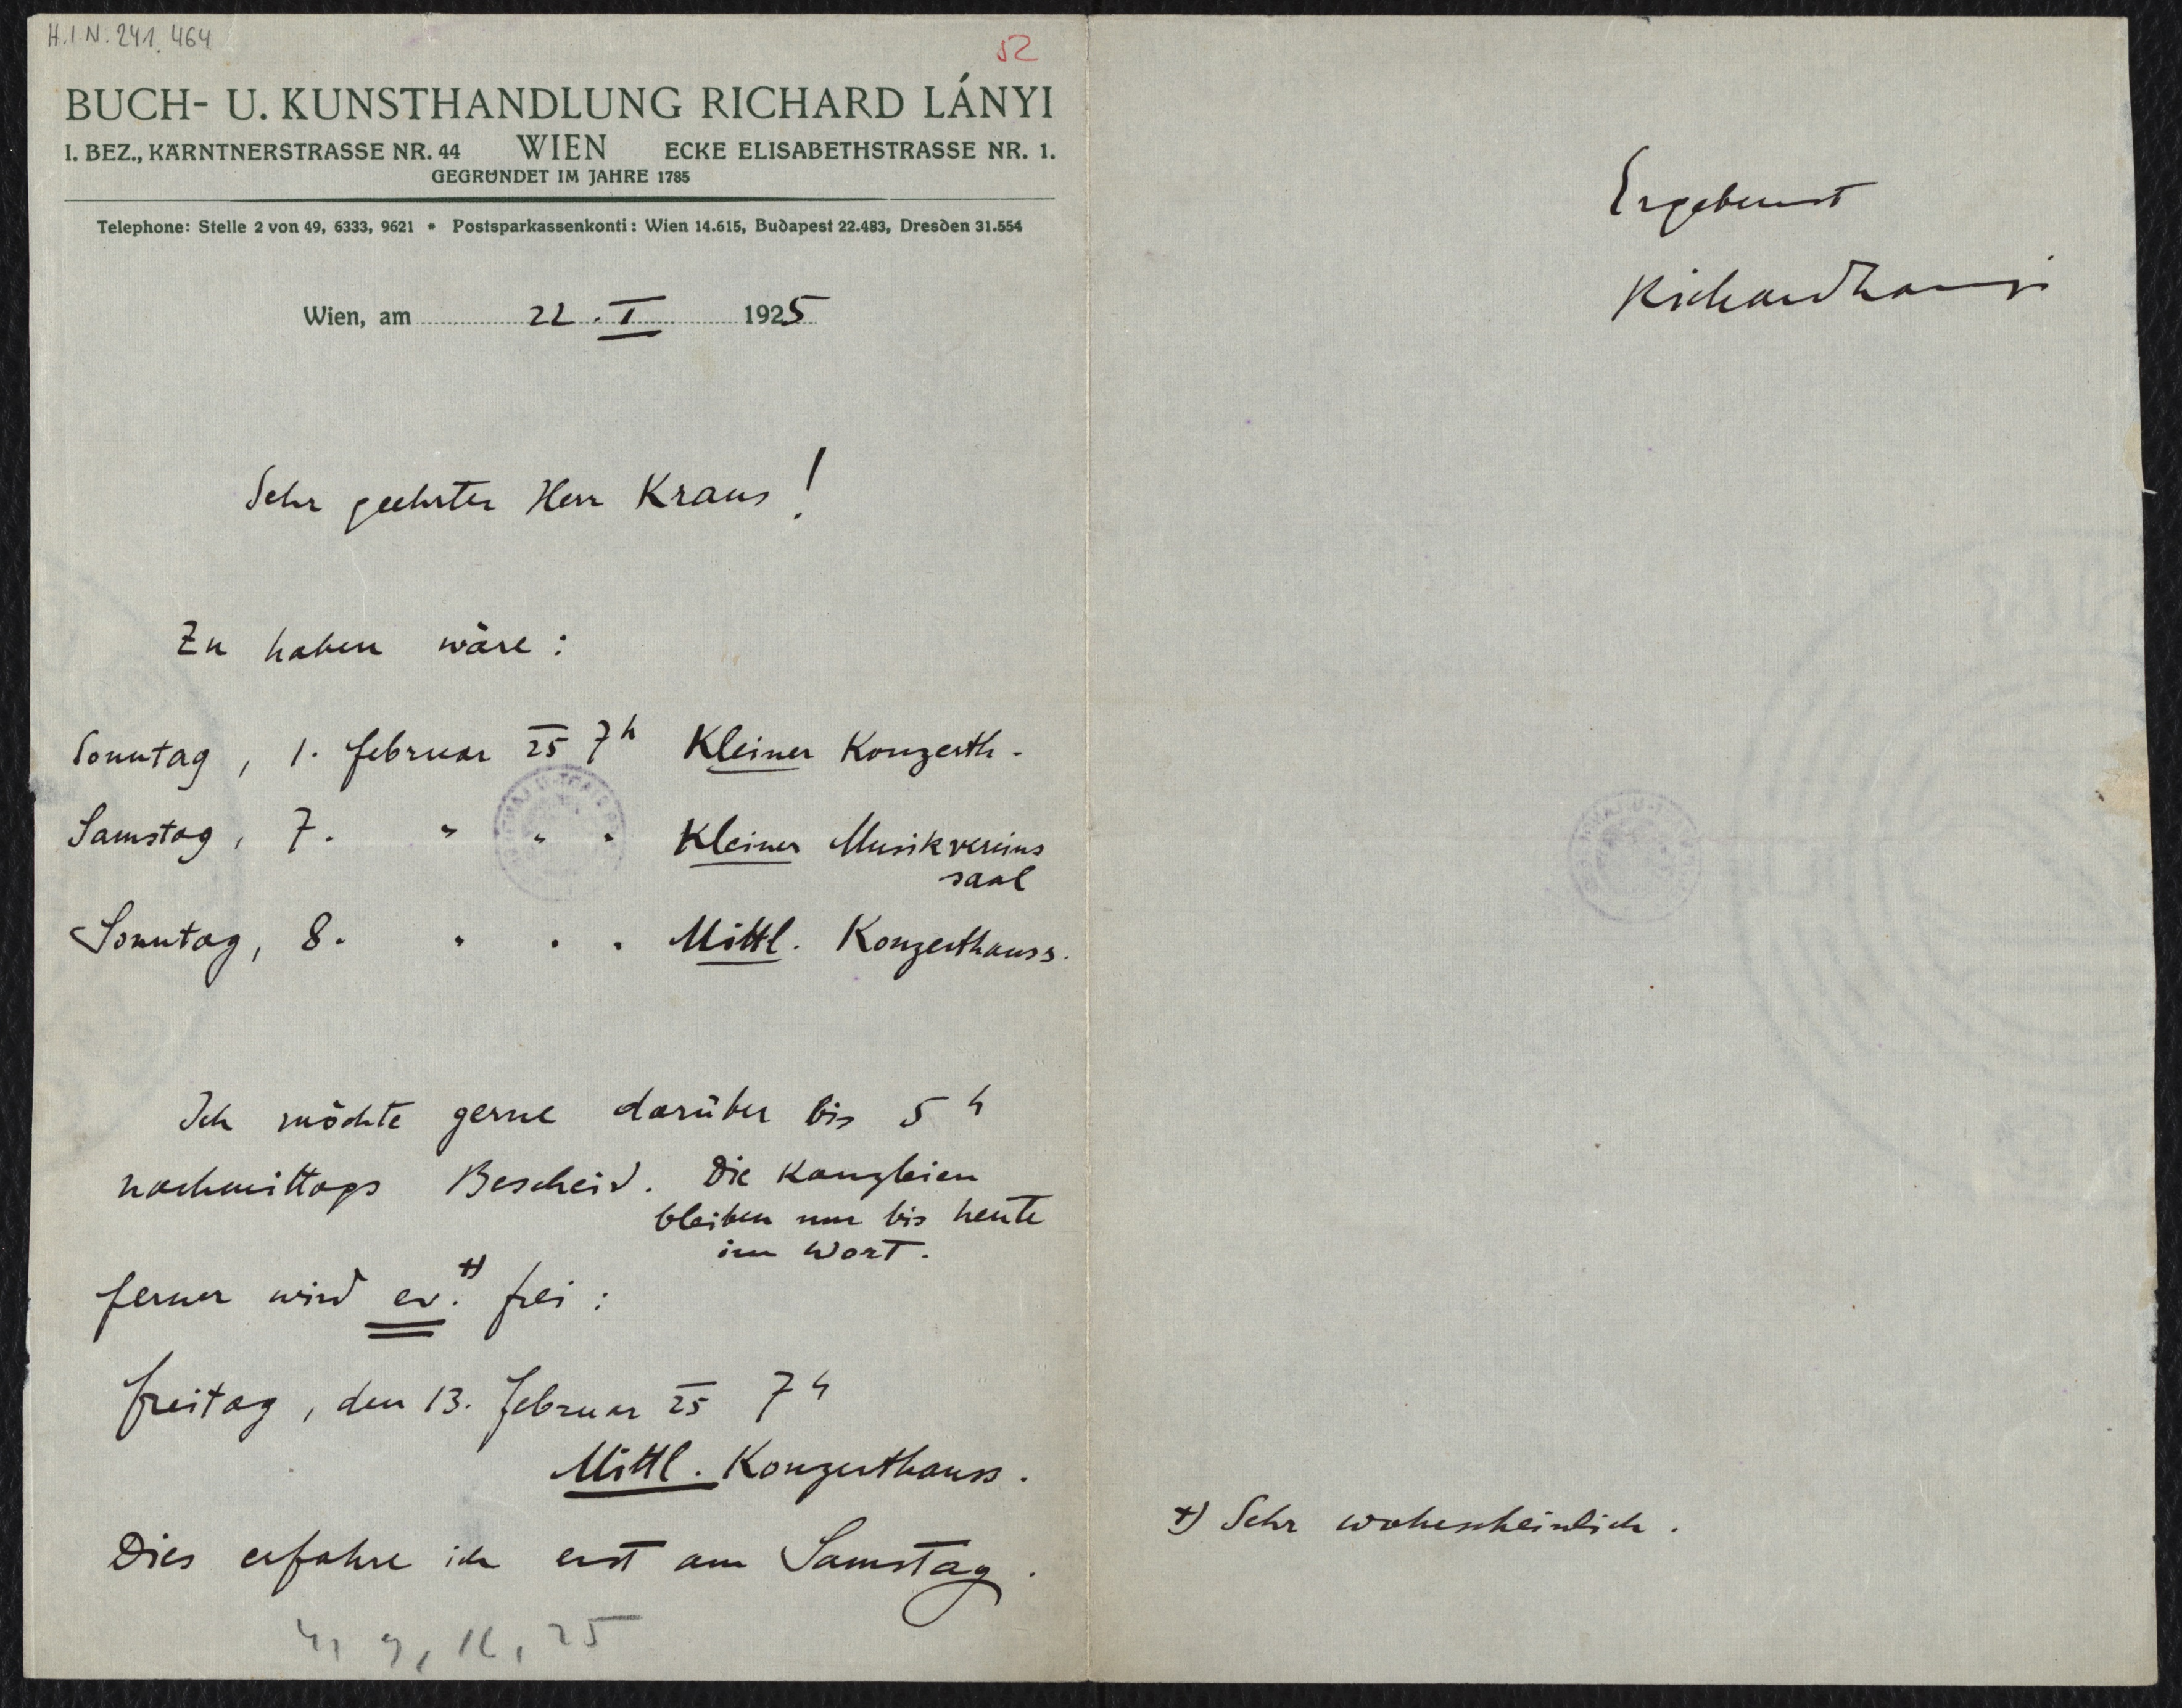 H.I.N. 241.464
52
BUCH- U. KUNSTHANDLUNG RICHARD LÁNYI
I. BEZ., KÄRNTNERSTRASSE NR. 44 WIEN ECKE ELISABETHSTRASSE NR. 1.
GEGRÜNDET IM JAHRE 1785
Telephone: Stelle 2 von 49, 6333, 9621 * Postsparkassenkonti: Wien 14.615, Budapest 22.483, Dresden 31.554
Wien, am 22. I 1925
Sehr geehrter Herr Kraus!
Zu haben wäre:
Sonntag, 1. Februar 25 7h Kleiner Konzerth.
Samstag, 7. " " " Kleiner Musikvereins
saal
Sonntag, 8. " " " Mittl. Konzerthauss.
Ich möchte gerne darüber bis 5h
nachmittags Bescheid. Die Kanzleien
bleiben nur bis heute
im Wort.
Ferner wird ev. +) frei:
Freitag, den 13. Februar 25 7h
Mittl. Konzerthauss.
Dies erfahre ich erst am Samstag.
4, 9, 12, 25
Ergebenst
Richard Lanyi
+) Sehr wahrscheinlich.